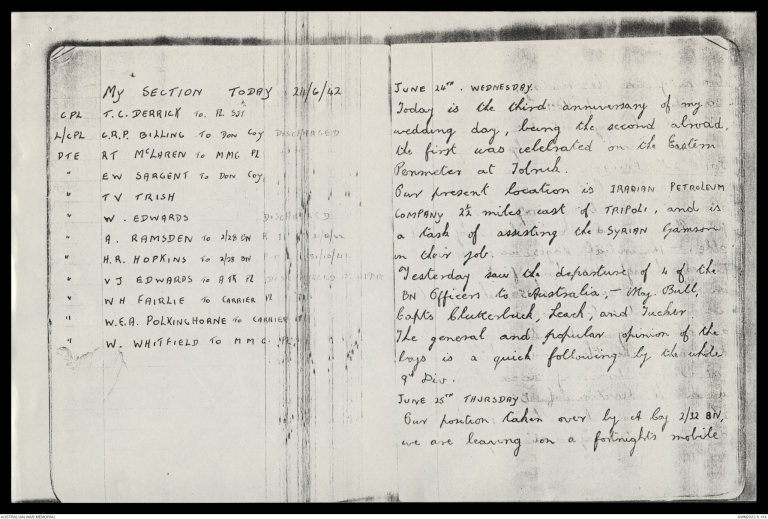 My SECTION TODAY 24/6/42
CPL T. C. DERRICK TO PL SJT
L/CPL G.R.P. BILLING TO DON COY DISCHARGED
PTE RT McLAREN TO MMG PL
" EW SARGENT TO DON COY
" TV TRISH
" W. EDWARDS DISCHARGED
" A. RAMSDEN TO 2/28 BN
" H.R. HOPKINS TO 2/28 BN
" VJ EDWARDS TO A TK PL
" WH FAIRLIE TO CARRIER PL
" W.E.A. POLKINGHORNE TO CARRIER
" W. WHITFIELD TO MMG PL
JUNE 24TH. WEDNESDAY.
Today is the third anniversary of my
wedding day, being the second abroad,
the first was celebrated on the Eastern
Perimeter at Tobruk.
Our present location is IRABIAN PETROLEUM
COMPANY 2½ miles east of TRIPOLI, and is
a task of assisting the SYRIAN Garrison
in their job.
Yesterday saw the departure of 4 of the
BN Officers to Australia, – Maj. Bull,
Capts Clutterbuck, Leach, and Tucker
The general and popular opinion of the
boys is a quick following by the whole
9th Div.
JUNE 25TH THURSDAY
Our position taken over by A Coy 2/32 BN,
we are leaving on a fortnights mobile
AUSTRALIAN WAR MEMORIAL